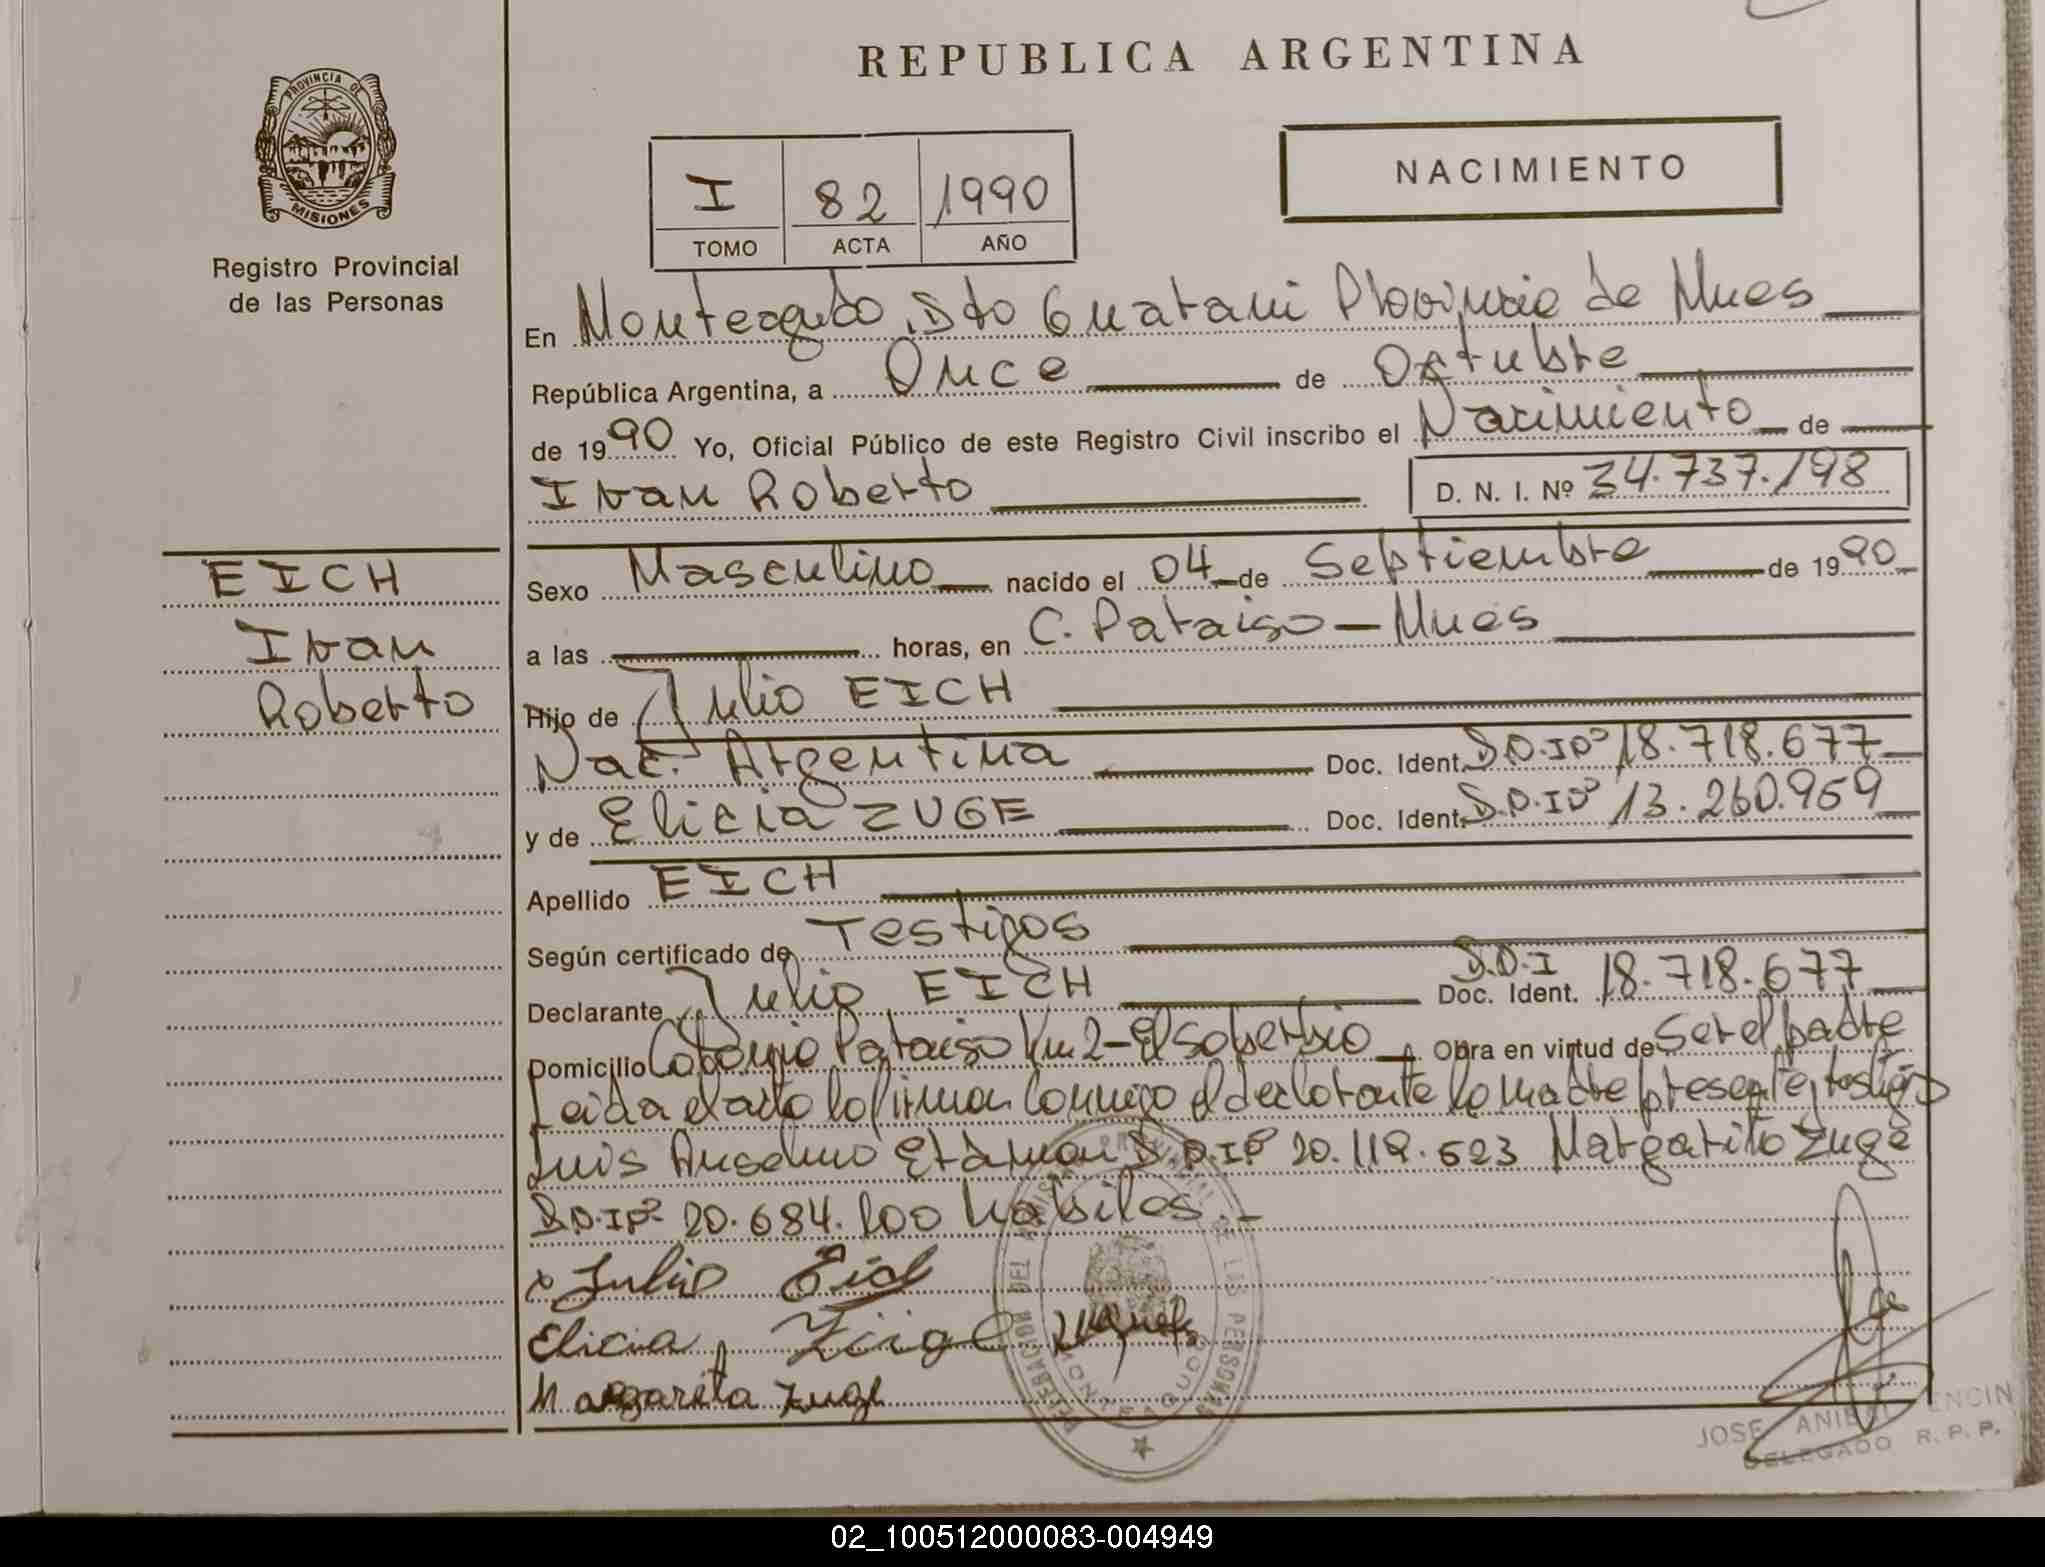 REPUBLICA ARGENTINA
PROVINCIA DE
MISIONES
Registro Provincial
de las Personas
I 82 1990
TOMO ACTA AÑO
NACIMIENTO
En Monteagudo, Dto Guarani Provincia de Mnes
República Argentina, a Once de Octubre
de 1990 Yo, Oficial Público de este Registro Civil inscribo el Nacimiento de
Ivan Roberto D. N. I. Nº 34.737.198
EICH
Ivan
Roberto
Sexo Masculino nacido el 04 de Septiembre de 1990
a las horas, en C. Paraiso - Mnes
Hijo de Julio EICH
Nac. Argentina Doc. Ident. 18.718.677
y de Elicia ZUGE Doc. Ident. 13.260.959
Apellido EICH
Según certificado de Testigos
Declarante Julio EICH D.N.I Doc. Ident. 18.718.677
Domicilio Colonia Paraiso Km 2 - El Soberbio Obra en virtud de Ser el padre
Leida el acta la firman conmigo el declarante la madre presente, testigos
Luis Anselmo 20.119.523 Margarita Zuge
20.684.100 habiles.-
x Julio Eich
Elicia Zuge
Margarita Zuge
DELEGACION DEL REGISTRO PROVINCIAL DE LAS PERSONAS
MONTEAGUDO
JOSE ANIBAL
DELEGADO R. P. P.
02_100512000083-004949